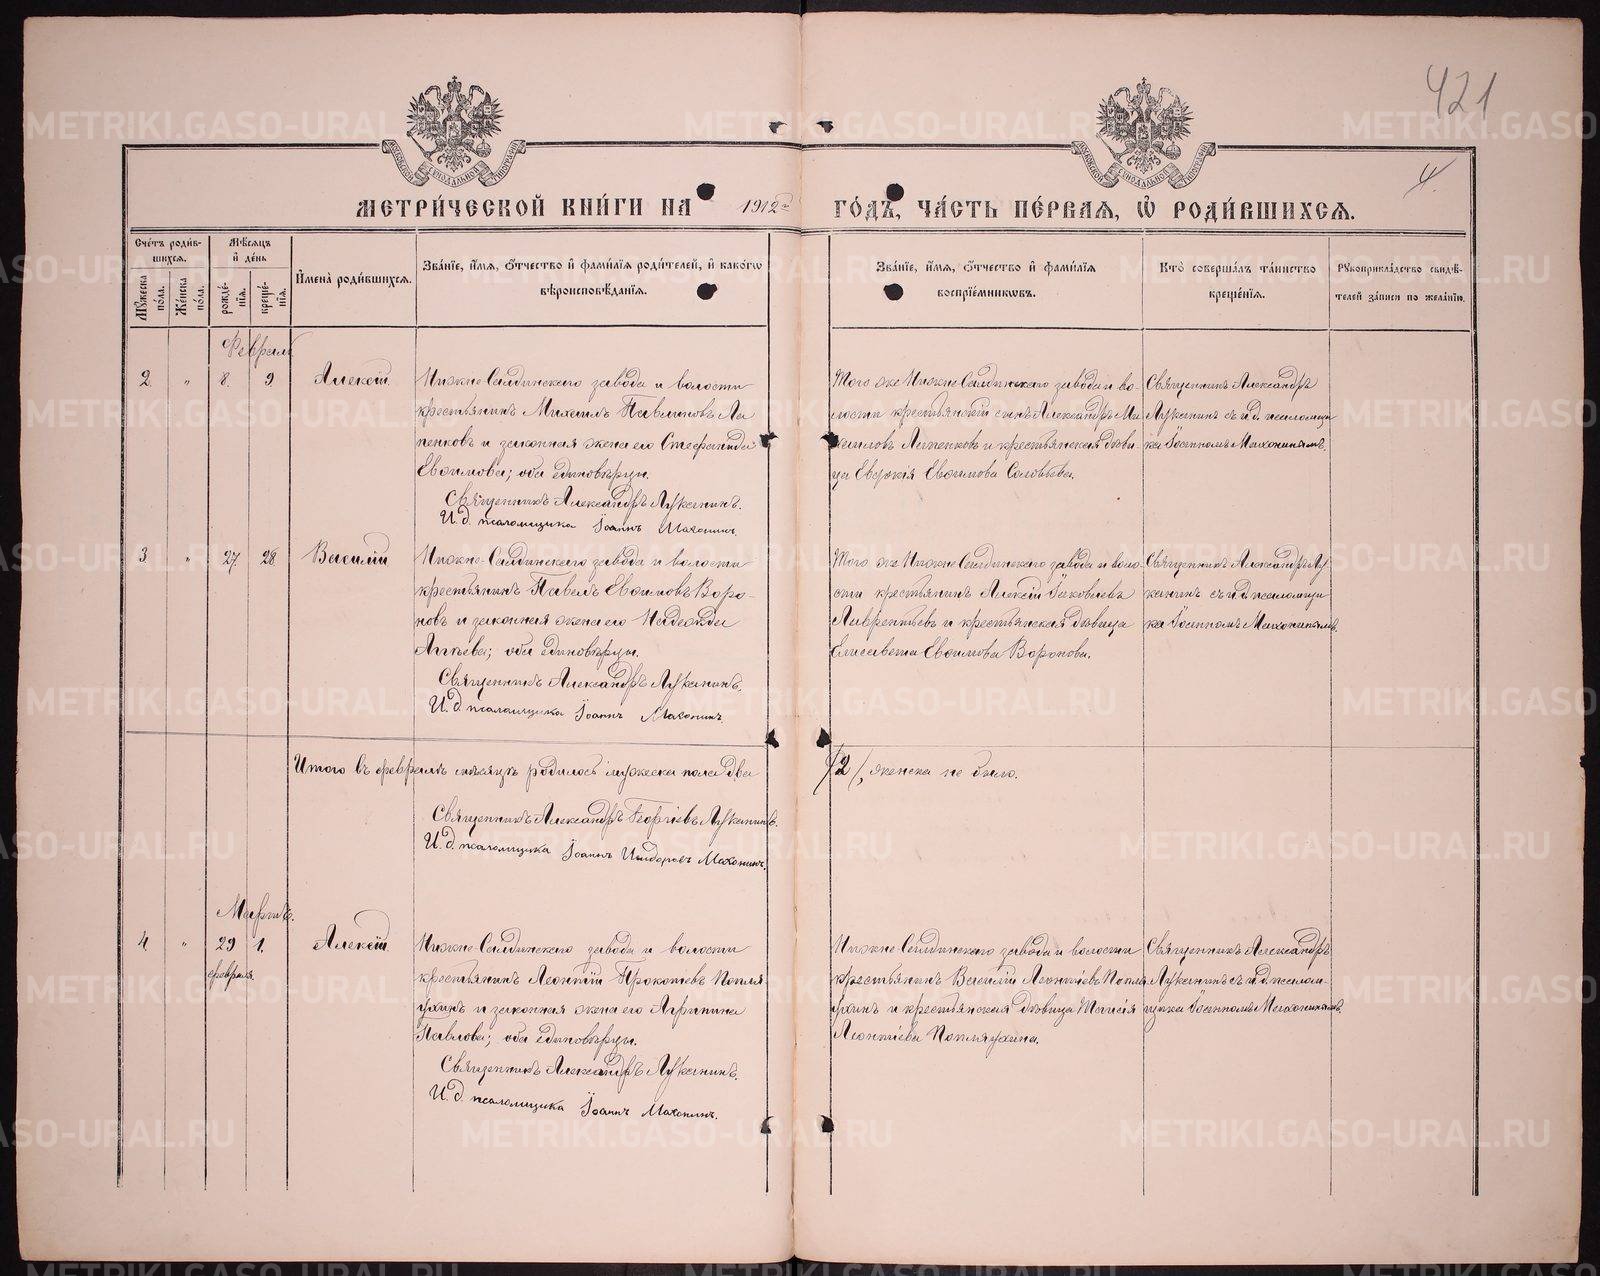 421
4.
МЕТРИ́ЧЕСКОЙ КНИ́ГИ НА 1912й ГО́ДЪ, ЧА́СТЬ ПЕ́РВАЯ, Ѽ РОДИ́ВШИХСЯ.
Сче́тъ роди́вшихся.
Мѣ́сяцъ и де́нь
Мꙋжеска по́ла.
Же́нска по́ла.
рожде́нїя.
креще́нїя.
И҆мена̀ роди́вшихся.
Зва́нїе, и҆́мя, ѻ҆́тчество и҆ фами́лїя роди́телей, и҆ како́гѡ
вѣроисповѣ́данїя.
Зва́нїе, и҆́мя, ѻ҆́тчество и҆ фами́лїя
воспрїе́мникѡвъ.
Кто̀ соверша́лъ та́инство
креще́нїя.
Рꙋкоприкла́дство свидѣ́-
телей за́писи по жела́нїю.
Февраль
2. " 8. 9 Алексій
Нижне-Салдинскаго завода и волости
крестьянинъ Михаилъ Павлиновъ Ла
пенковъ и законная жена его Стефанида
Евѳимова; оба единовѣрцы.
Священникъ Александръ Луканинъ.
И. д. псаломщика Іоаннъ Махонинъ.
Того же Нижне-Салдинскаго завода и во-
лости крестьянскій сынъ Александръ Ми
хаиловъ Лапенковъ и крестьянская дѣви
ца Евдокія Евѳимова Соловьева.
Священникъ Александръ
Луканинъ съ и. д. псаломщи
ка Іоанномъ Махонинымъ.
3 " 27. 28 Василій
Нижне-Салдинскаго завода и волости
крестьянинъ Павелъ Евѳимовъ Воро-
новъ и законная жена его Надежда
Агіева; оба единовѣрцы.
Священникъ Александръ Луканинъ.
И. д. псаломщика Іоаннъ Махонинъ.
Того же Нижне-Салдинскаго завода и воло-
сти крестьянинъ Алексій Іаковлевъ
Лаврентьевъ и крестьянская дѣвица
Елисавета Евѳимова Воронова.
Священникъ Александръ Лу
канинъ съ и. д. псаломщи
ка Іоанномъ Махонинымъ.
Итого въ февралѣ мѣсяцѣ родилось мужеска пола два /2/, женска не было.
Священникъ Александръ Георгіевъ Луканинъ.
И. д. псаломщика Іоаннъ Исидоровъ Махонинъ.
Мартъ.
4 " 29 1. Алексій
февраля
Нижне-Салдинскаго завода и волости
крестьянинъ Леонтій Прокопьевъ Попля
ухинъ и законная жена его Агрипина
Павлова; оба единовѣрцы.
Священникъ Александръ Луканинъ.
И. д. псаломщика Іоаннъ Махонинъ.
Нижне-Салдинскаго завода и волости
крестьянинъ Василій Леонтіевъ Попля
ухинъ и крестьянская дѣвица Таисія
Леонтіева Попляухина.
Священникъ Александръ
Луканинъ съ и. д. псалом-
щика Іоанномъ Махонинымъ.